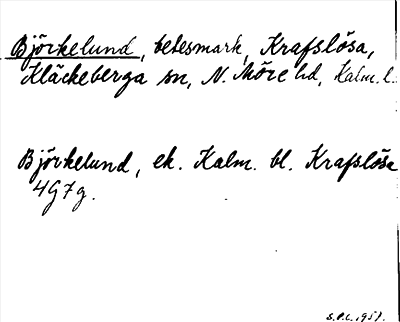 Björkelund, betesmark, Krafslösa,
Kläckeberga sn, N. Möre hd, Kalm. l.
Björkelund, ek. Kalm. bl. Krafslösa
4G7g.
S.P.C. 1957.